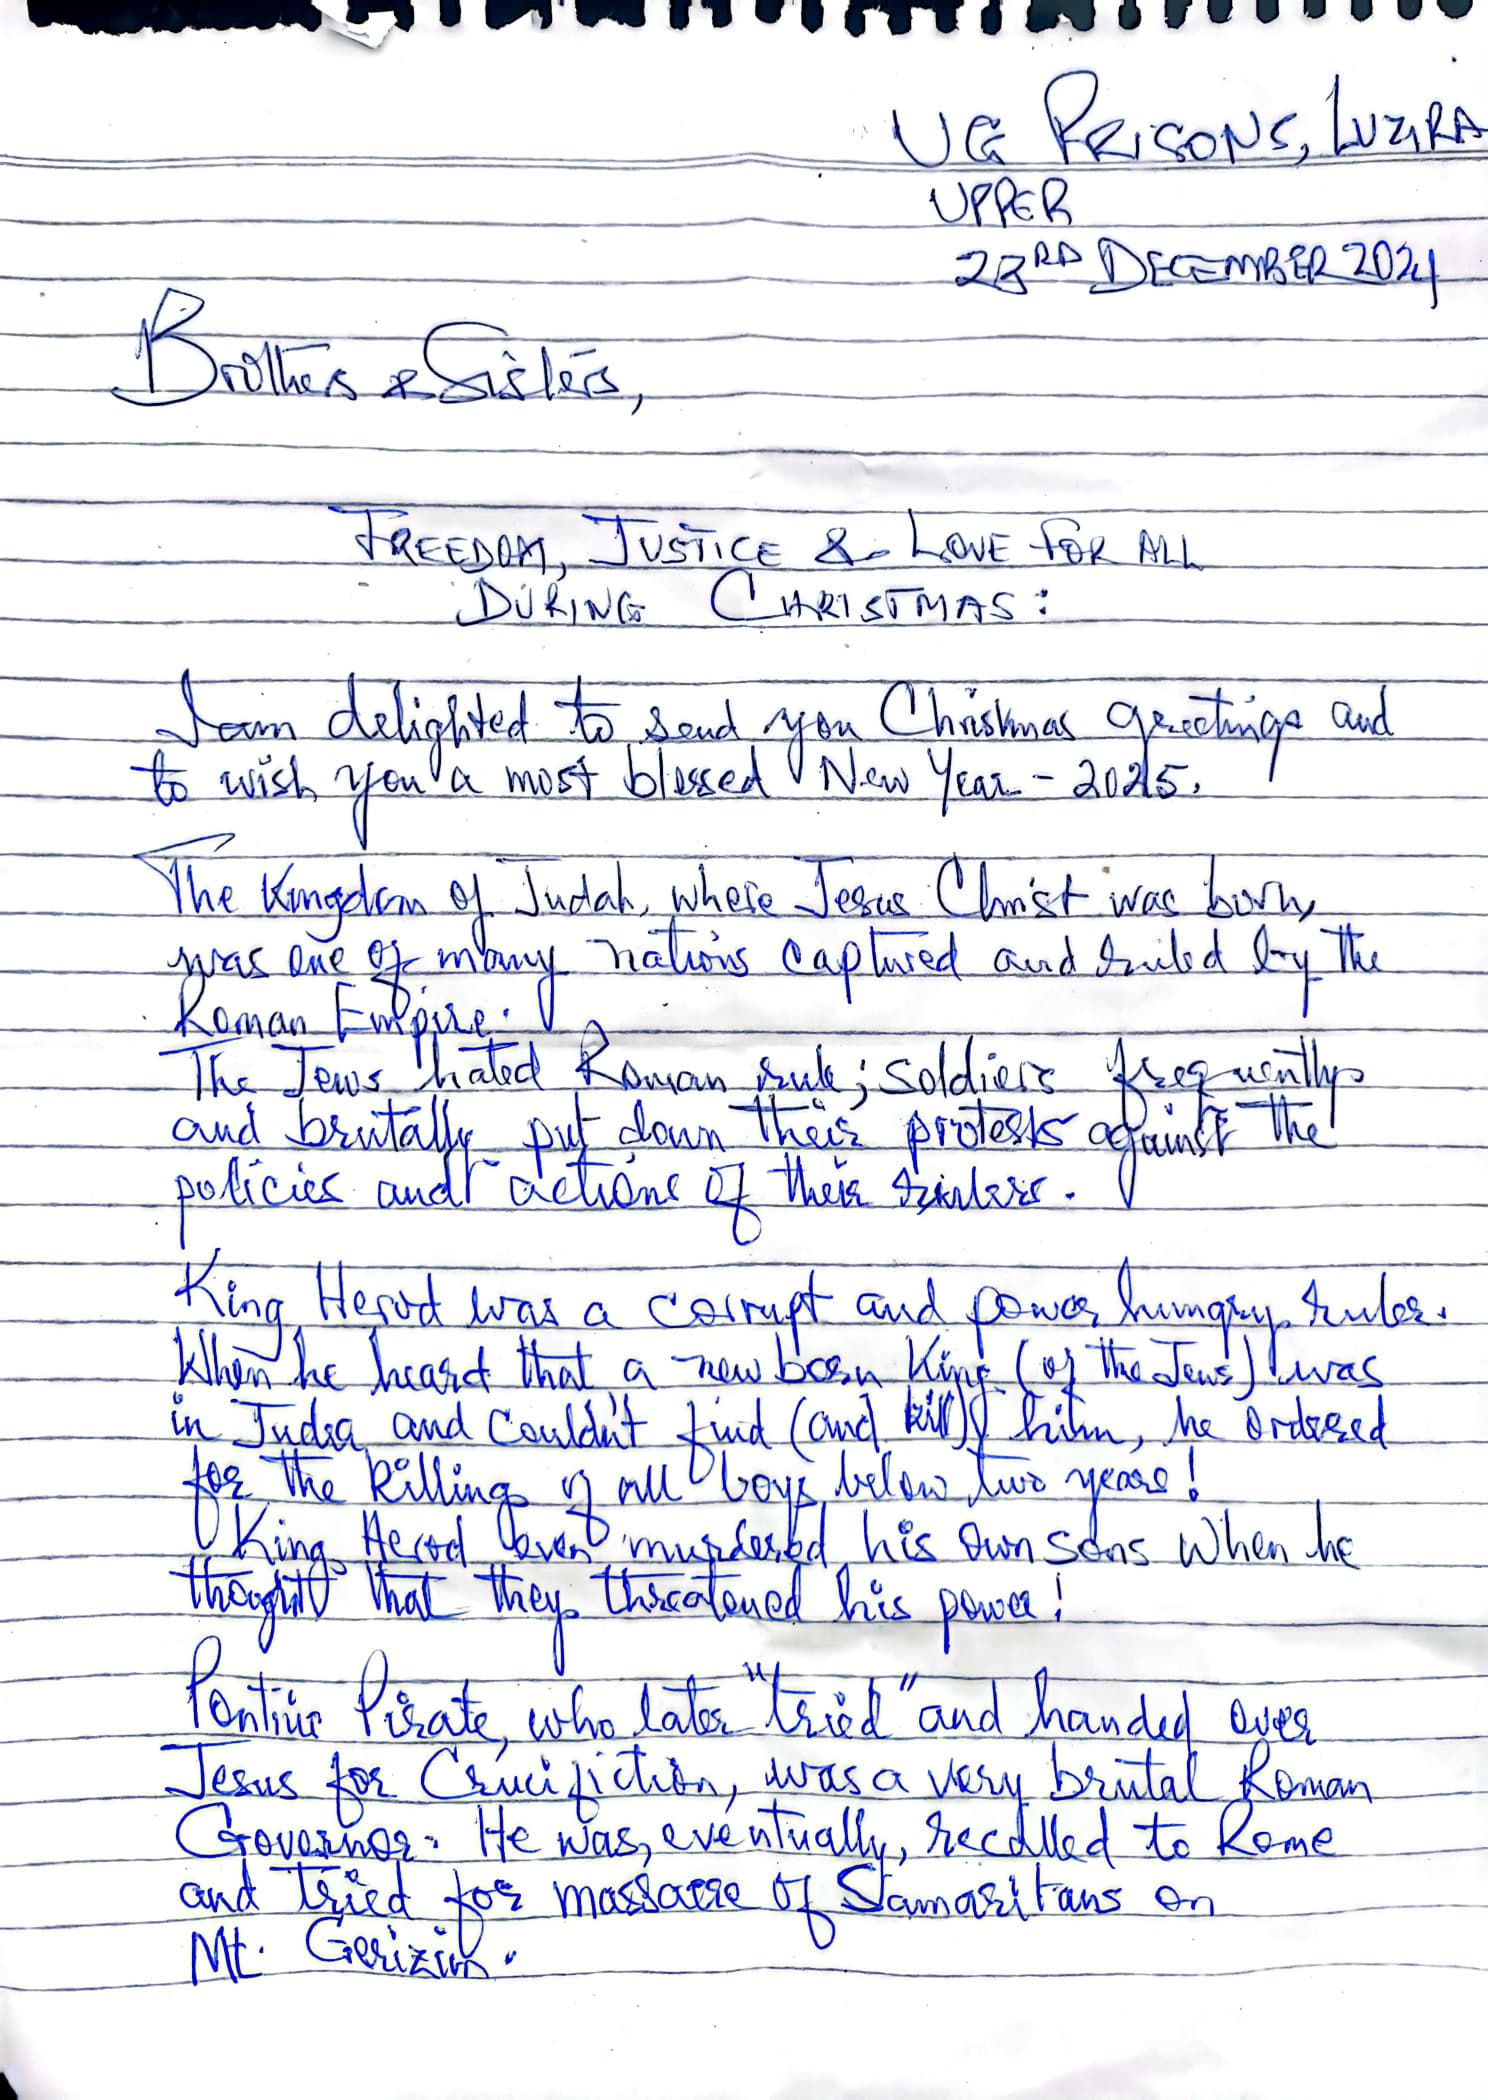 UG PRISONS, LUZIRA
UPPER
23RD DECEMBER 2024
Brothers & Sisters,
FREEDOM, JUSTICE & LOVE FOR ALL
DURING CHRISTMAS:
I am delighted to send you Christmas greetings and
to wish you a most blessed New Year - 2025.
The Kingdom of Judah, where Jesus Christ was born,
was one of many nations captured and ruled by the
Roman Empire.
The Jews hated Roman rule; soldiers frequently
and brutally put down their protests against the
policies and actions of their rulers.
King Herod was a corrupt and power hungry ruler.
When he heard that a new born King (of the Jews) was
in Judea and couldn't find (and kill) him, he ordered
for the killing of all boys below two years!
King Herod even murdered his own sons when he
thought that they threatened his power!
Pontius Pirate, who later "tried" and handed over
Jesus for Crucifiction, was a very brutal Roman
Governor. He was, eventually, recalled to Rome
and tried for massacre of Samaritans on
Mt. Gerizim.